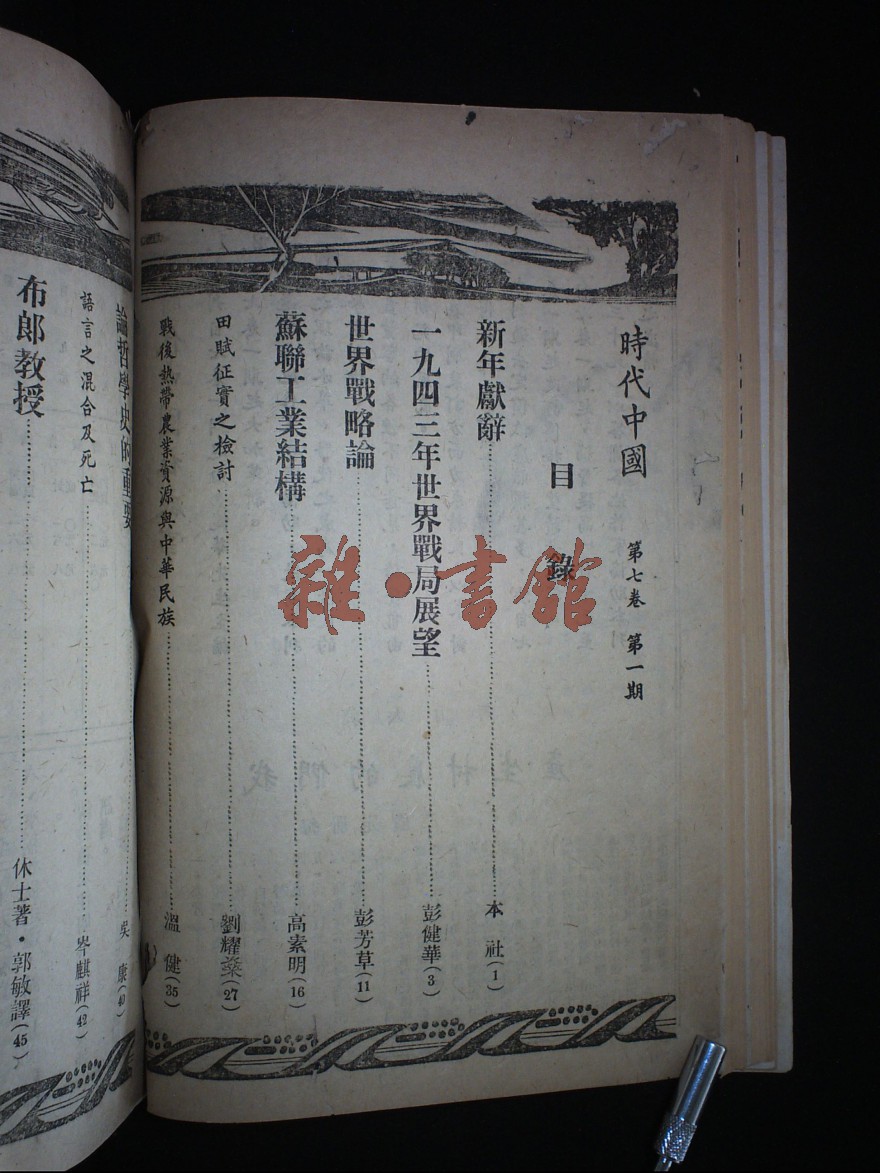 時代中國 第七卷 第一期
目錄
新年獻辭……本社(1)
一九四三年世界戰局展望……彭健華(3)
世界戰略論……彭芳草(11)
蘇聯工業結構……高素明(16)
田賦征實之檢討……劉耀燊(27)
戰後熱帶農業資源與中華民族……溫健(35)
論哲學史的重要……吳康(40)
語言之混合及死亡……岑麒祥(42)
布郎教授……休士著·郭敏譯(45)
雜·書館